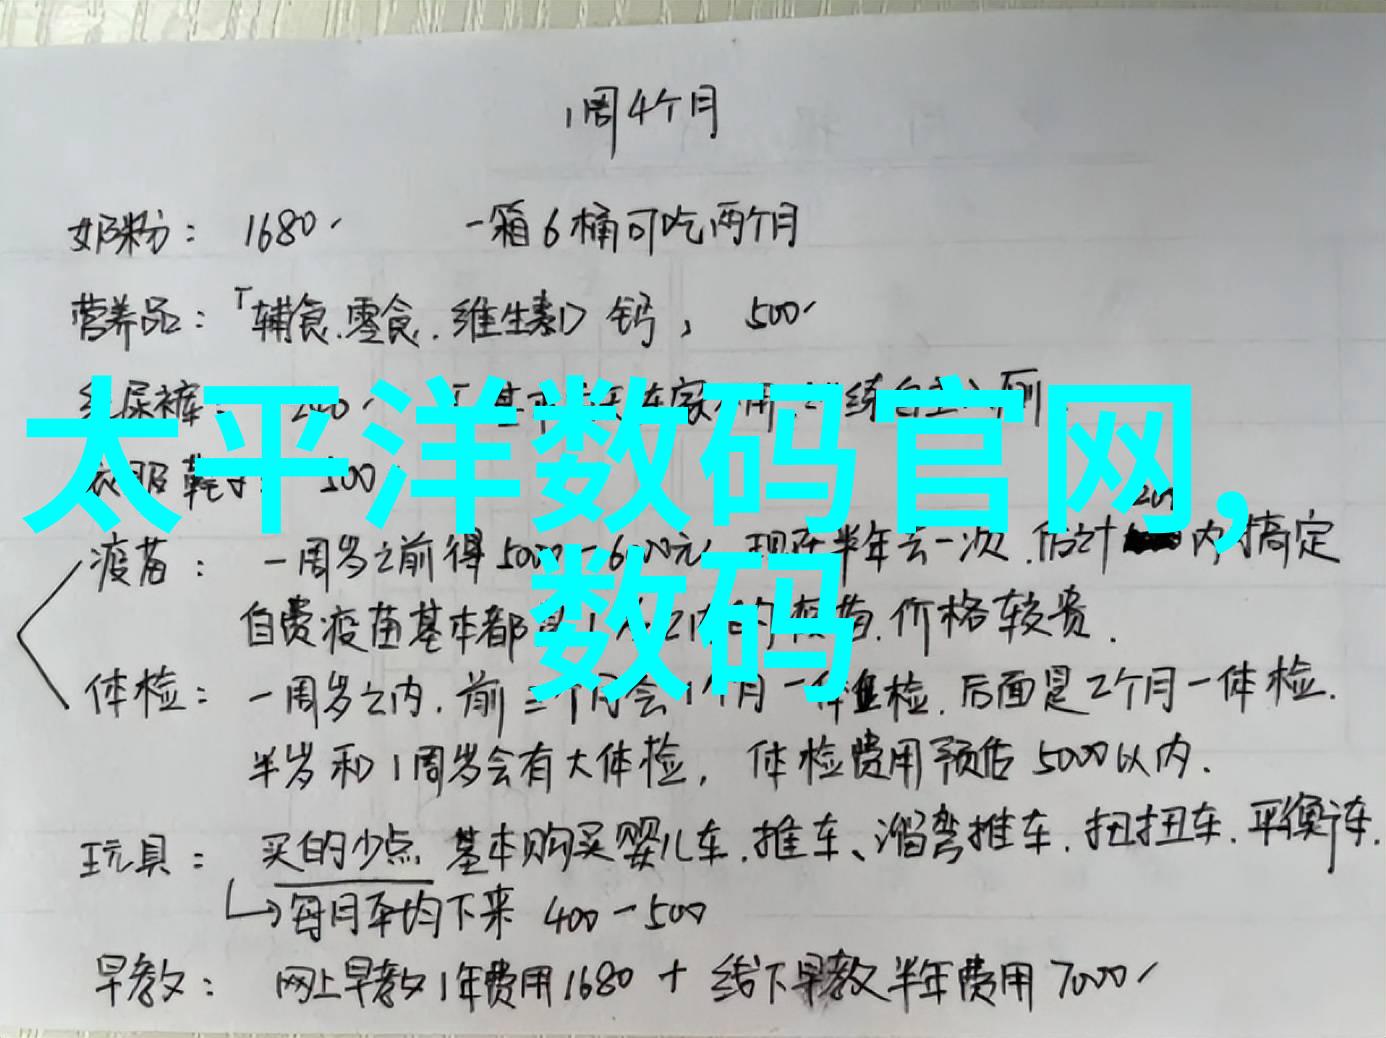 1周4个月
奶粉： 1680 一箱6桶可吃两个月
营养品：「辅食.零食.维生素D 钙， 500
尿裤
太平洋数码官网,
数码
疫苗： 一周岁之前得 半年去一次.估计 内搞定
自费疫苗基本都 疫苗.价格较贵.
体检： 一周岁之内.前三个月会1个月一 检.后面是2个月一体检.
半岁和1周岁会有大体检， 体检费用预估5000以内.
玩具： 买的少点 基本购买婴儿车.推车、溜弯推车.扭扭车.平衡车.
每月平均下来 400-500
早教： 网上早教1年费用1680 + 线下早教半年费用7000